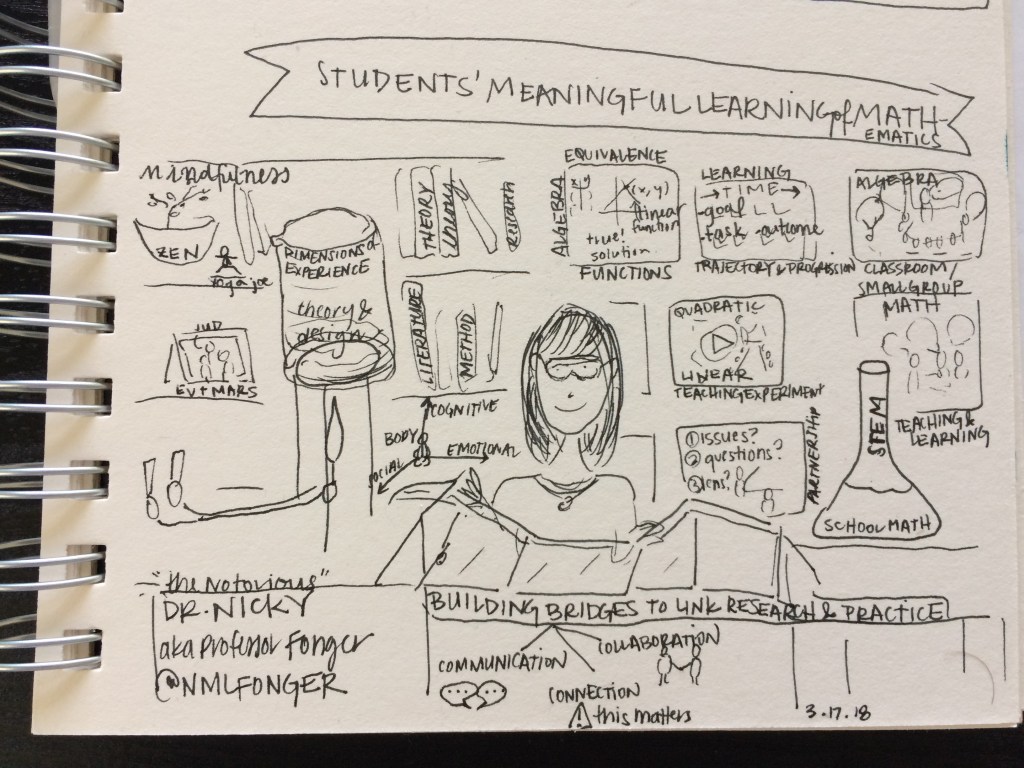 STUDENTS' MEANINGFUL LEARNING of MATH-
EMATICS
mindfulness
ZEN
yoga joe
EV + MARS
DIMENSIONS of
EXPERIENCE
theory &
design
THEORY
Research
LITERATURE
METHOD
COGNITIVE
BODY
EMOTIONAL
SOCIAL
EQUIVALENCE
ALGEBRA
(x,y)
linear
function
true!
solution
FUNCTIONS
LEARNING
→TIME→
-goal
-task -outcome
TRAJECTORY & PROGRESSION
ALGEBRA
CLASSROOM/
SMALL GROUP
MATH
TEACHING &
LEARNING
QUADRATIC
LINEAR
TEACHING EXPERIMENT
① issues?
② questions?
PARTNERSHIP
STEM
SCHOOL MATH
"the Notorious"
DR. NICKY
aka Professor Fonger
@NMLFONGER
BUILDING BRIDGES TO LINK RESEARCH & PRACTICE
COMMUNICATION
COLLABORATION
CONNECTION
! this matters
3.17.18